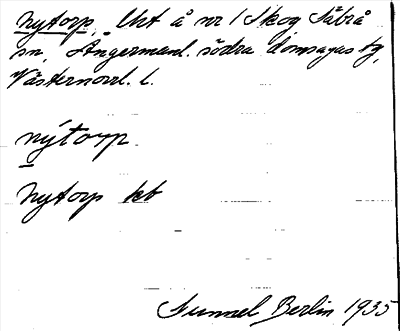 Nytorp. Uht å nr 1 Skog Säbrå
sn, Ångermanl. södra domsagas tg,
Västernorrl. l.
nýtorp.
Nytorp kb
Gunnel Berlin 1935